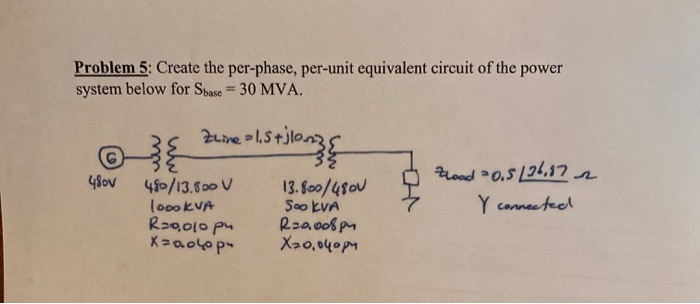 Problem 5: Create the per-phase, per-unit equivalent circuit of the power
system below for Sbase = 30 MVA.
ZLine = 1,5 + j10Ω
G
480V
480/13.800 V
1000 KVA
R=0,010 pu
X=0.040 pu
13.800/480V
500 KVA
R=0.008 pu
X=0,040 pu
Zload = 0.5 ∠36.87 Ω
Y connected